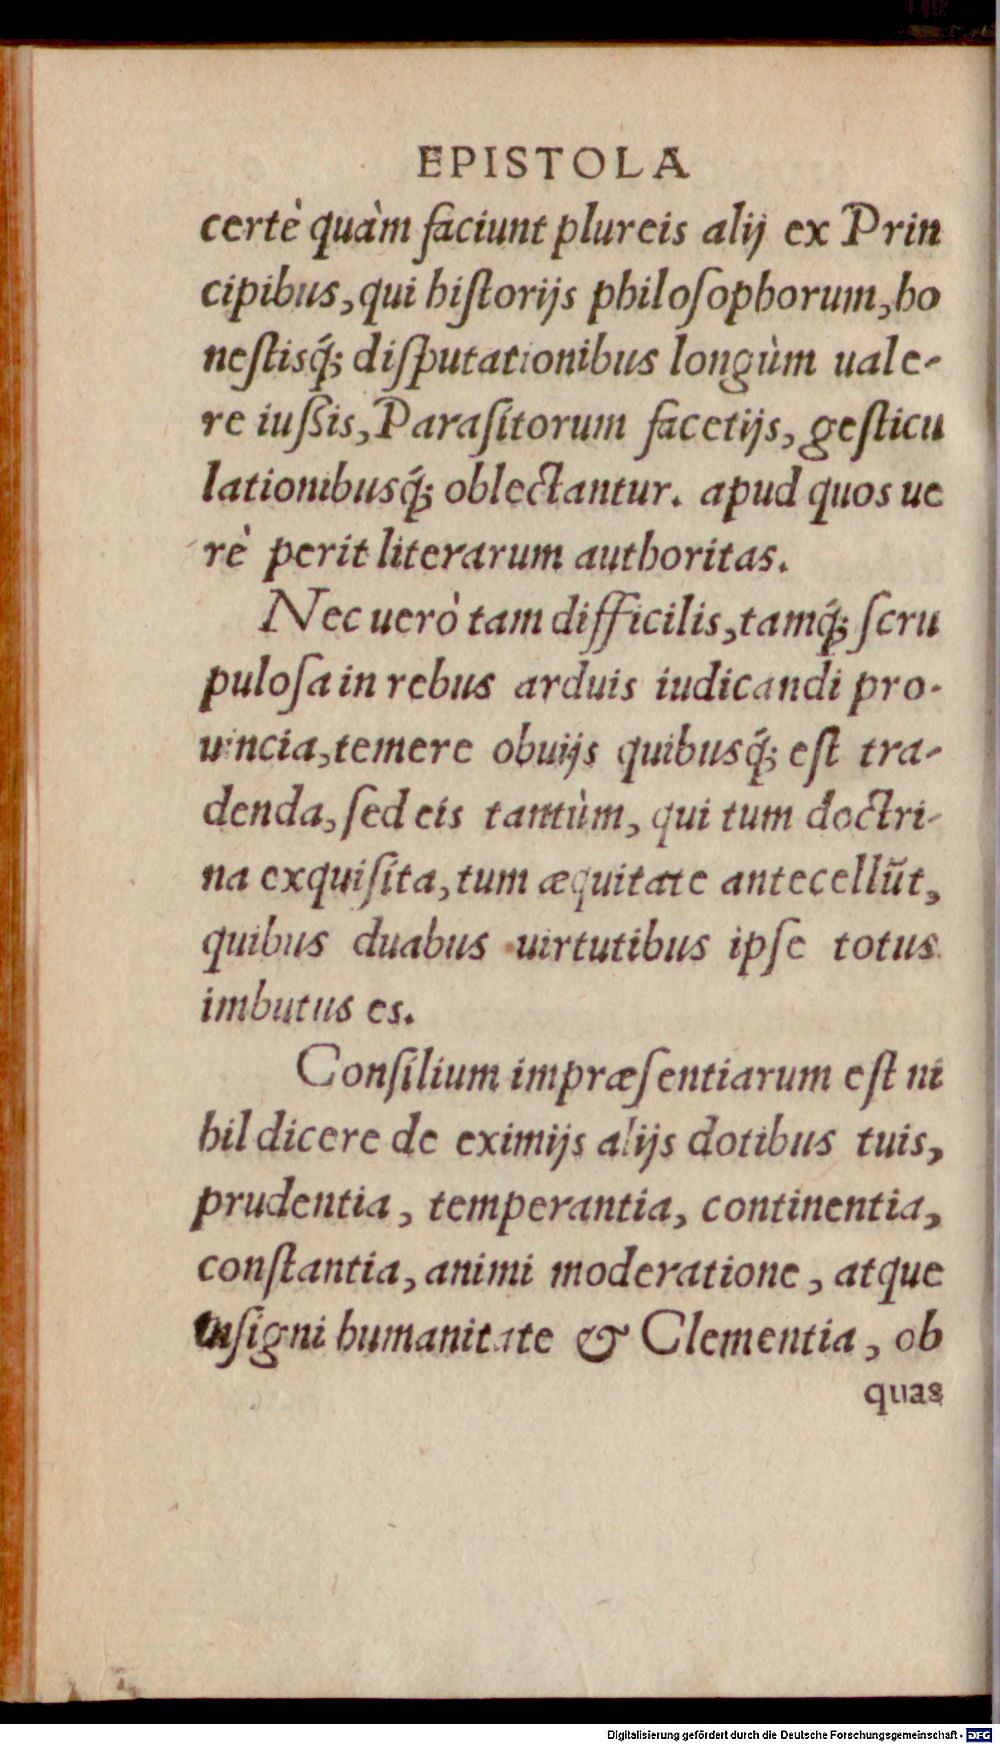 EPISTOLA
certè quàm faciunt plureis alij ex Prin
cipibus, qui historijs philosophorum, ho
nestisq́; disputationibus longùm uale-
re iussis, Parasitorum facetijs, gesticu
lationibusq́; oblectantur. apud quos ue
rè perit literarum authoritas.
Nec uerò tam difficilis, tamq́; scru
pulosa in rebus arduis iudicandi pro-
uincia, temere obuijs quibusq́; est tra-
denda, sed eis tantùm, qui tum doctri-
na exquisita, tum æquitate antecellūt,
quibus duabus uirtutibus ipse totus
imbutus es.
Consilium impræsentiarum est ni
hil dicere de eximijs alijs dotibus tuis,
prudentia, temperantia, continentia,
constantia, animi moderatione, atque
insigni humanitate & Clementia, ob
quas
Digitalisierung gefördert durch die Deutsche Forschungsgemeinschaft - DFG